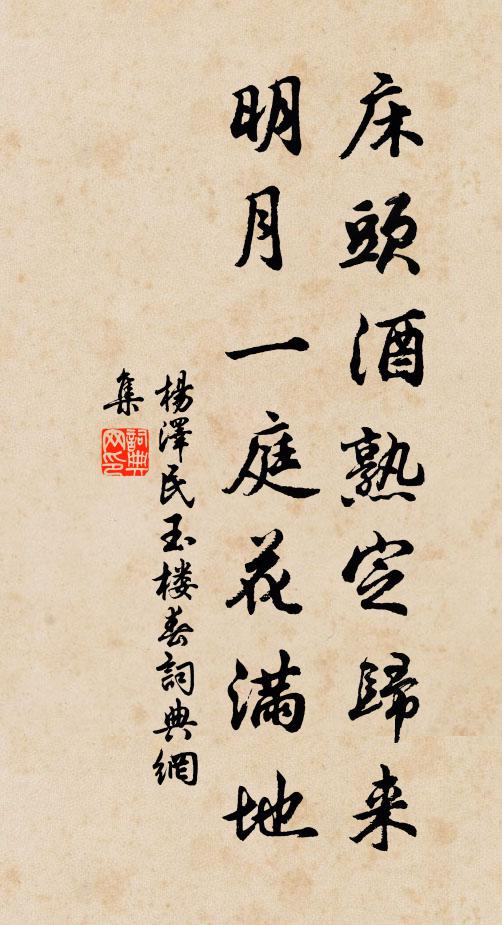 床頭酒熟定歸来
明月一庭花滿地
楊澤民玉楼春詞典網
集
詞典網印